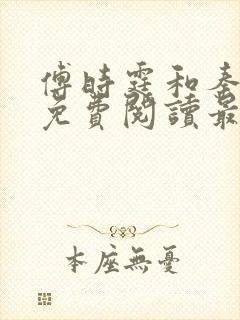 傅時霆和秦
免費閱讀最
本座無憂